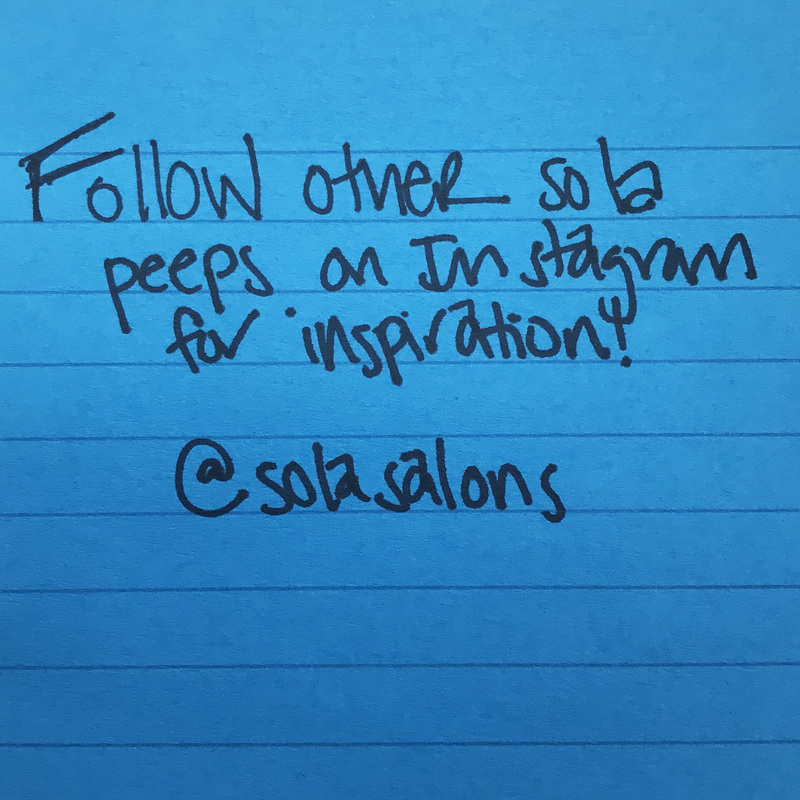 Follow other sola
peeps on Instagram
for inspiration!
@solasalons